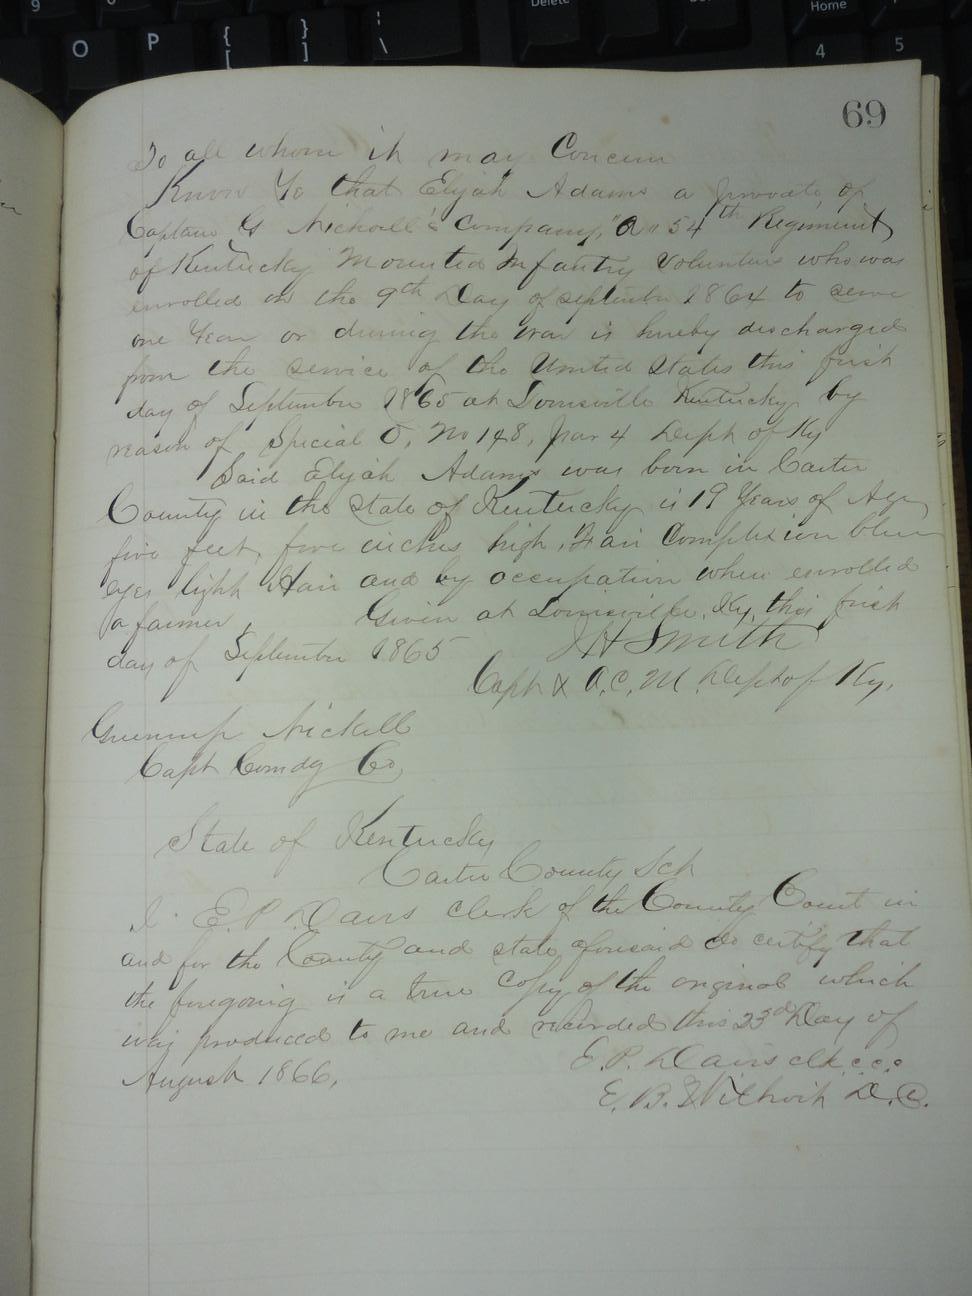 9 Delete Home
O P { [ } ] | \ 4 5
69
To all whom it may Concern
Know Ye that Elijah Adams a private of
Captain G Nickell's Company, "A" 54th Regiment
of Kentucky Mounted Infantry Volunteers who was
enrolled on the 9th Day of September 1864 to serve
one Year or during the war is hereby discharged
from the service of the United States this first
day of September 1865 at Louisville Kentucky by
reason of Special O, No 148, par 4 Dept of Ky
Said Elijah Adams was born in Carter
County in the State of Kentucky is 19 Years of Age,
five feet, five inches high, Fair Complexion blue
eyes light Hair and by occupation when enrolled
a farmer, Given at Louisville, Ky, this first
day of September 1865
J H Smith
Capt & A.C.M. Dept of Ky,
Greenup Nickell
Capt Comdg Co,
State of Kentucky
Carter County Sct
I. E. P. Davis clerk of the County Court in
and for the County and state aforesaid do certify that
the foregoing is a true Copy of the original which
was produced to me and recorded this 23d Day of
August 1866,
E. P. Davis clk. c. c. c
E. B. D. C.